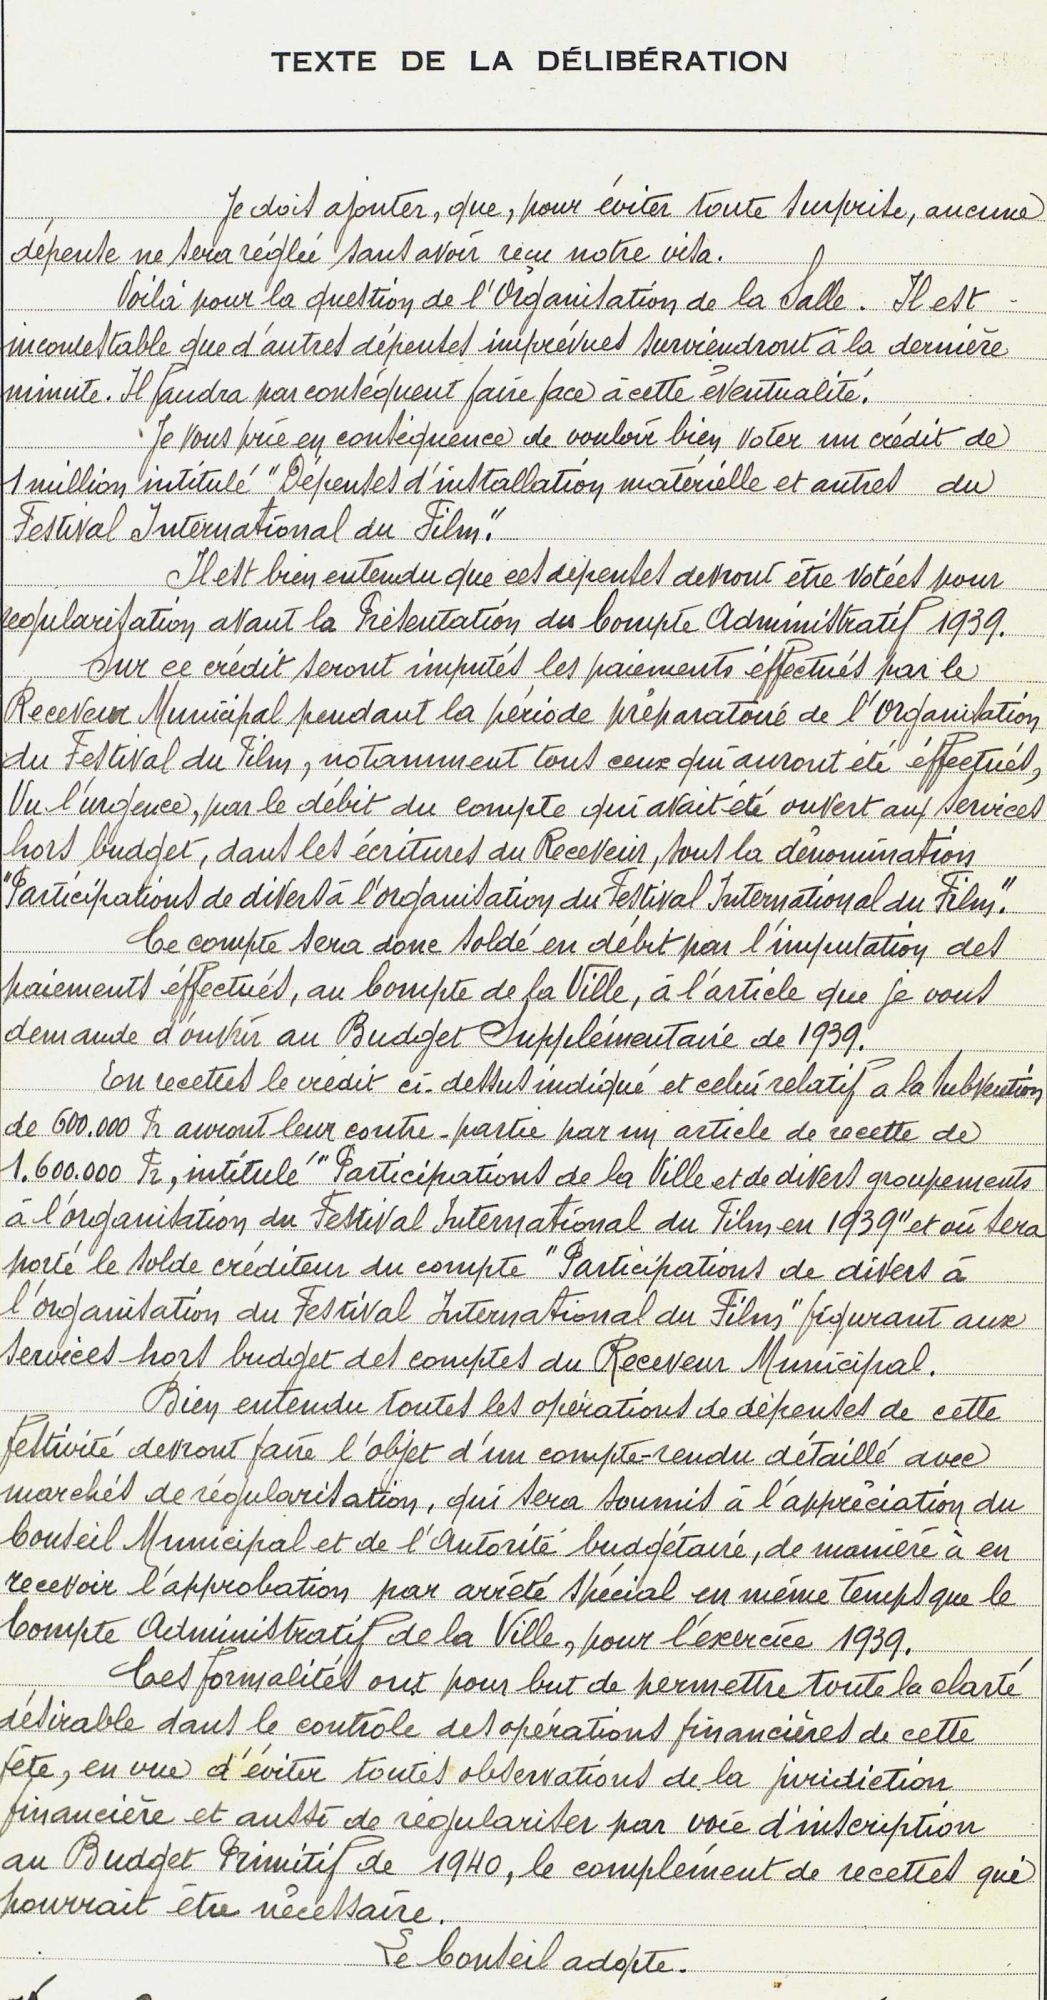 TEXTE DE LA DÉLIBÉRATION
Je dois ajouter, que, pour éviter toute surprise, aucune
dépense ne sera réglée sans avoir reçu notre visa.
Voilà pour la question de l'Organisation de la Salle. Il est
incontestable que d'autres dépenses imprévues surviendront à la dernière
minute. Il faudra par conséquent faire face à cette éventualité.
Je vous prie en conséquence de vouloir bien voter un crédit de
1 million intitulé "Dépenses d'installation matérielle et autres du
Festival International du Film".
Il est bien entendu que ces dépenses devront être votées pour
régularisation avant la Présentation du Compte Administratif 1939.
Sur ce crédit seront imputés les paiements éffectués par le
Receveur Municipal pendant la période préparatoire de l'Organisation
du Festival du Film, notamment tous ceux qui auront été éffectués,
Vu l'urgence, par le débit du compte qui avait été ouvert aux services
hors budget, dans les écritures du Receveur, sous la dénomination
"Participations de divers à l'organisation du Festival International du Film".
Ce compte sera donc soldé en débit par l'imputation des
paiements éffectués, au Compte de la Ville, à l'article que je vous
demande d'ouvrir au Budget Supplémentaire de 1939.
En recettes le crédit ci-dessus indiqué et celui relatif a la subvention
de 600.000 Fr auront leur contre-partie par un article de recette de
1.600.000 Fr, intitulé "Participations de la Ville et de divers groupements
à l'organisation du Festival International du Film en 1939" et où sera
porté le solde créditeur du compte "Participations de divers à
l'organisation du Festival International du Film" figurant aux
services hors budget des comptes du Receveur Municipal.
Bien entendu toutes les opérations de dépenses de cette
festivité devront faire l'objet d'un compte-rendu détaillé avec
marchés de régularisation, qui sera soumis à l'appréciation du
Conseil Municipal et de l'Autorité budgétaire, de manière à en
recevoir l'approbation par arrêté spécial en même temps que le
Compte Administratif de la Ville, pour l'exercice 1939.
Ces formalités ont pour but de permettre toute la clarté
désirable dans le contrôle des opérations financières de cette
fête, en vue d'éviter toutes observations de la juridiction
financière et aussi de régulariser par voie d'inscription
au Budget Primitif de 1940, le complément de recettes qui
pourrait être nécessaire.
Le Conseil adopte.